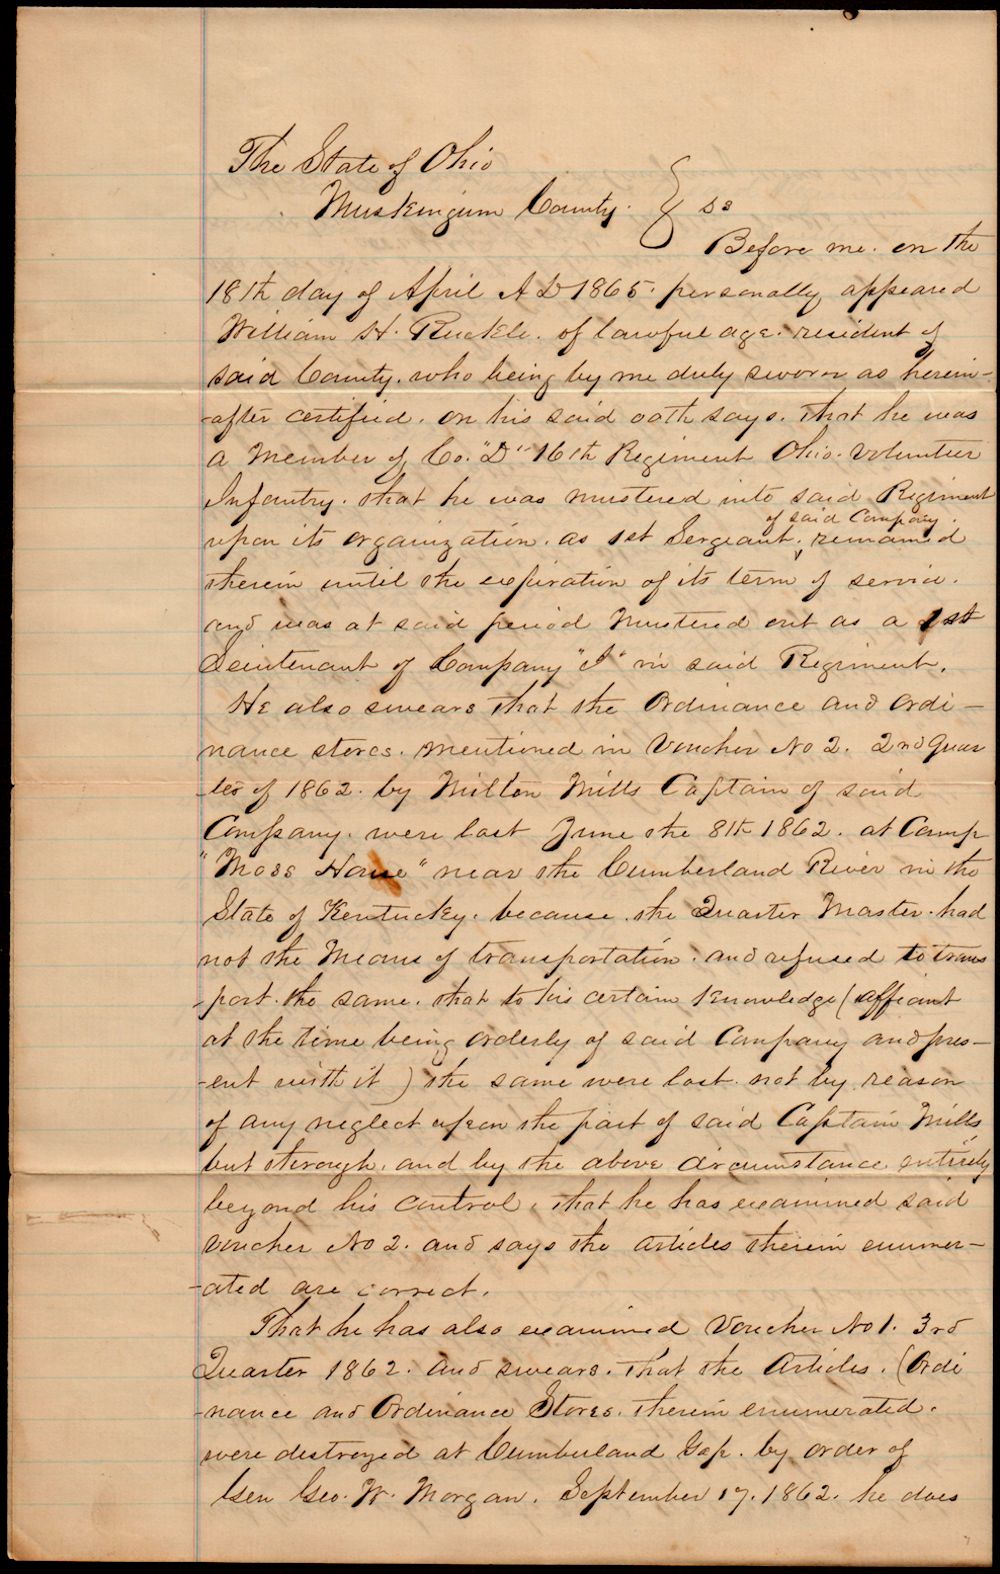 The State of Ohio
Muskingum County. } ss
Before me. on the
18th day of April A D 1865. personally appeared
William H. Ruckle. of lawful age. resident of
said County. who being by me duly sworn as herein-
-after certified. on his said oath says. that he was
a Member of Co. "D" 16th Regiment Ohio. Volunteer
Infantry. that he was mustered into said Regiment
of said Company.
upon its organization. as 1st Sergeant, remained
therein until the expiration of its term of service.
and was at said period Mustered out as a 1st
Leiutenant of Company "I" in said Regiment.
He also swears that the Ordinance and Ordi-
nance stores. mentioned in Voucher No 2. 2nd Quar
-ter of 1862. by Milton Mills Captain of said
Company. were lost June the 8th 1862. at Camp
"Moss House" near the Cumberland River in the
State of Kentucky. because the Quarter Master had
not the Means of transportation. and refused to trans
-port the same. that to his certain knowledge (affiant
at the time being orderly of said Company and pres-
-ent with it) the same were lost not by reason
of any neglect upon the part of said Captain Mills
but through, and by the above circumstance entirely
beyond his control, that he has examined said
Voucher No 2. and says the articles therein enumer-
-ated are correct.
That he has also examined Voucher No 1. 3rd
Quarter 1862. and swears. that the Articles. (Ordi
-nance and Ordinance Stores. therein enumerated.
were destroyed at Cumberland Gap. by order of
Gen Geo. W. Morgan. September 17. 1862. he does